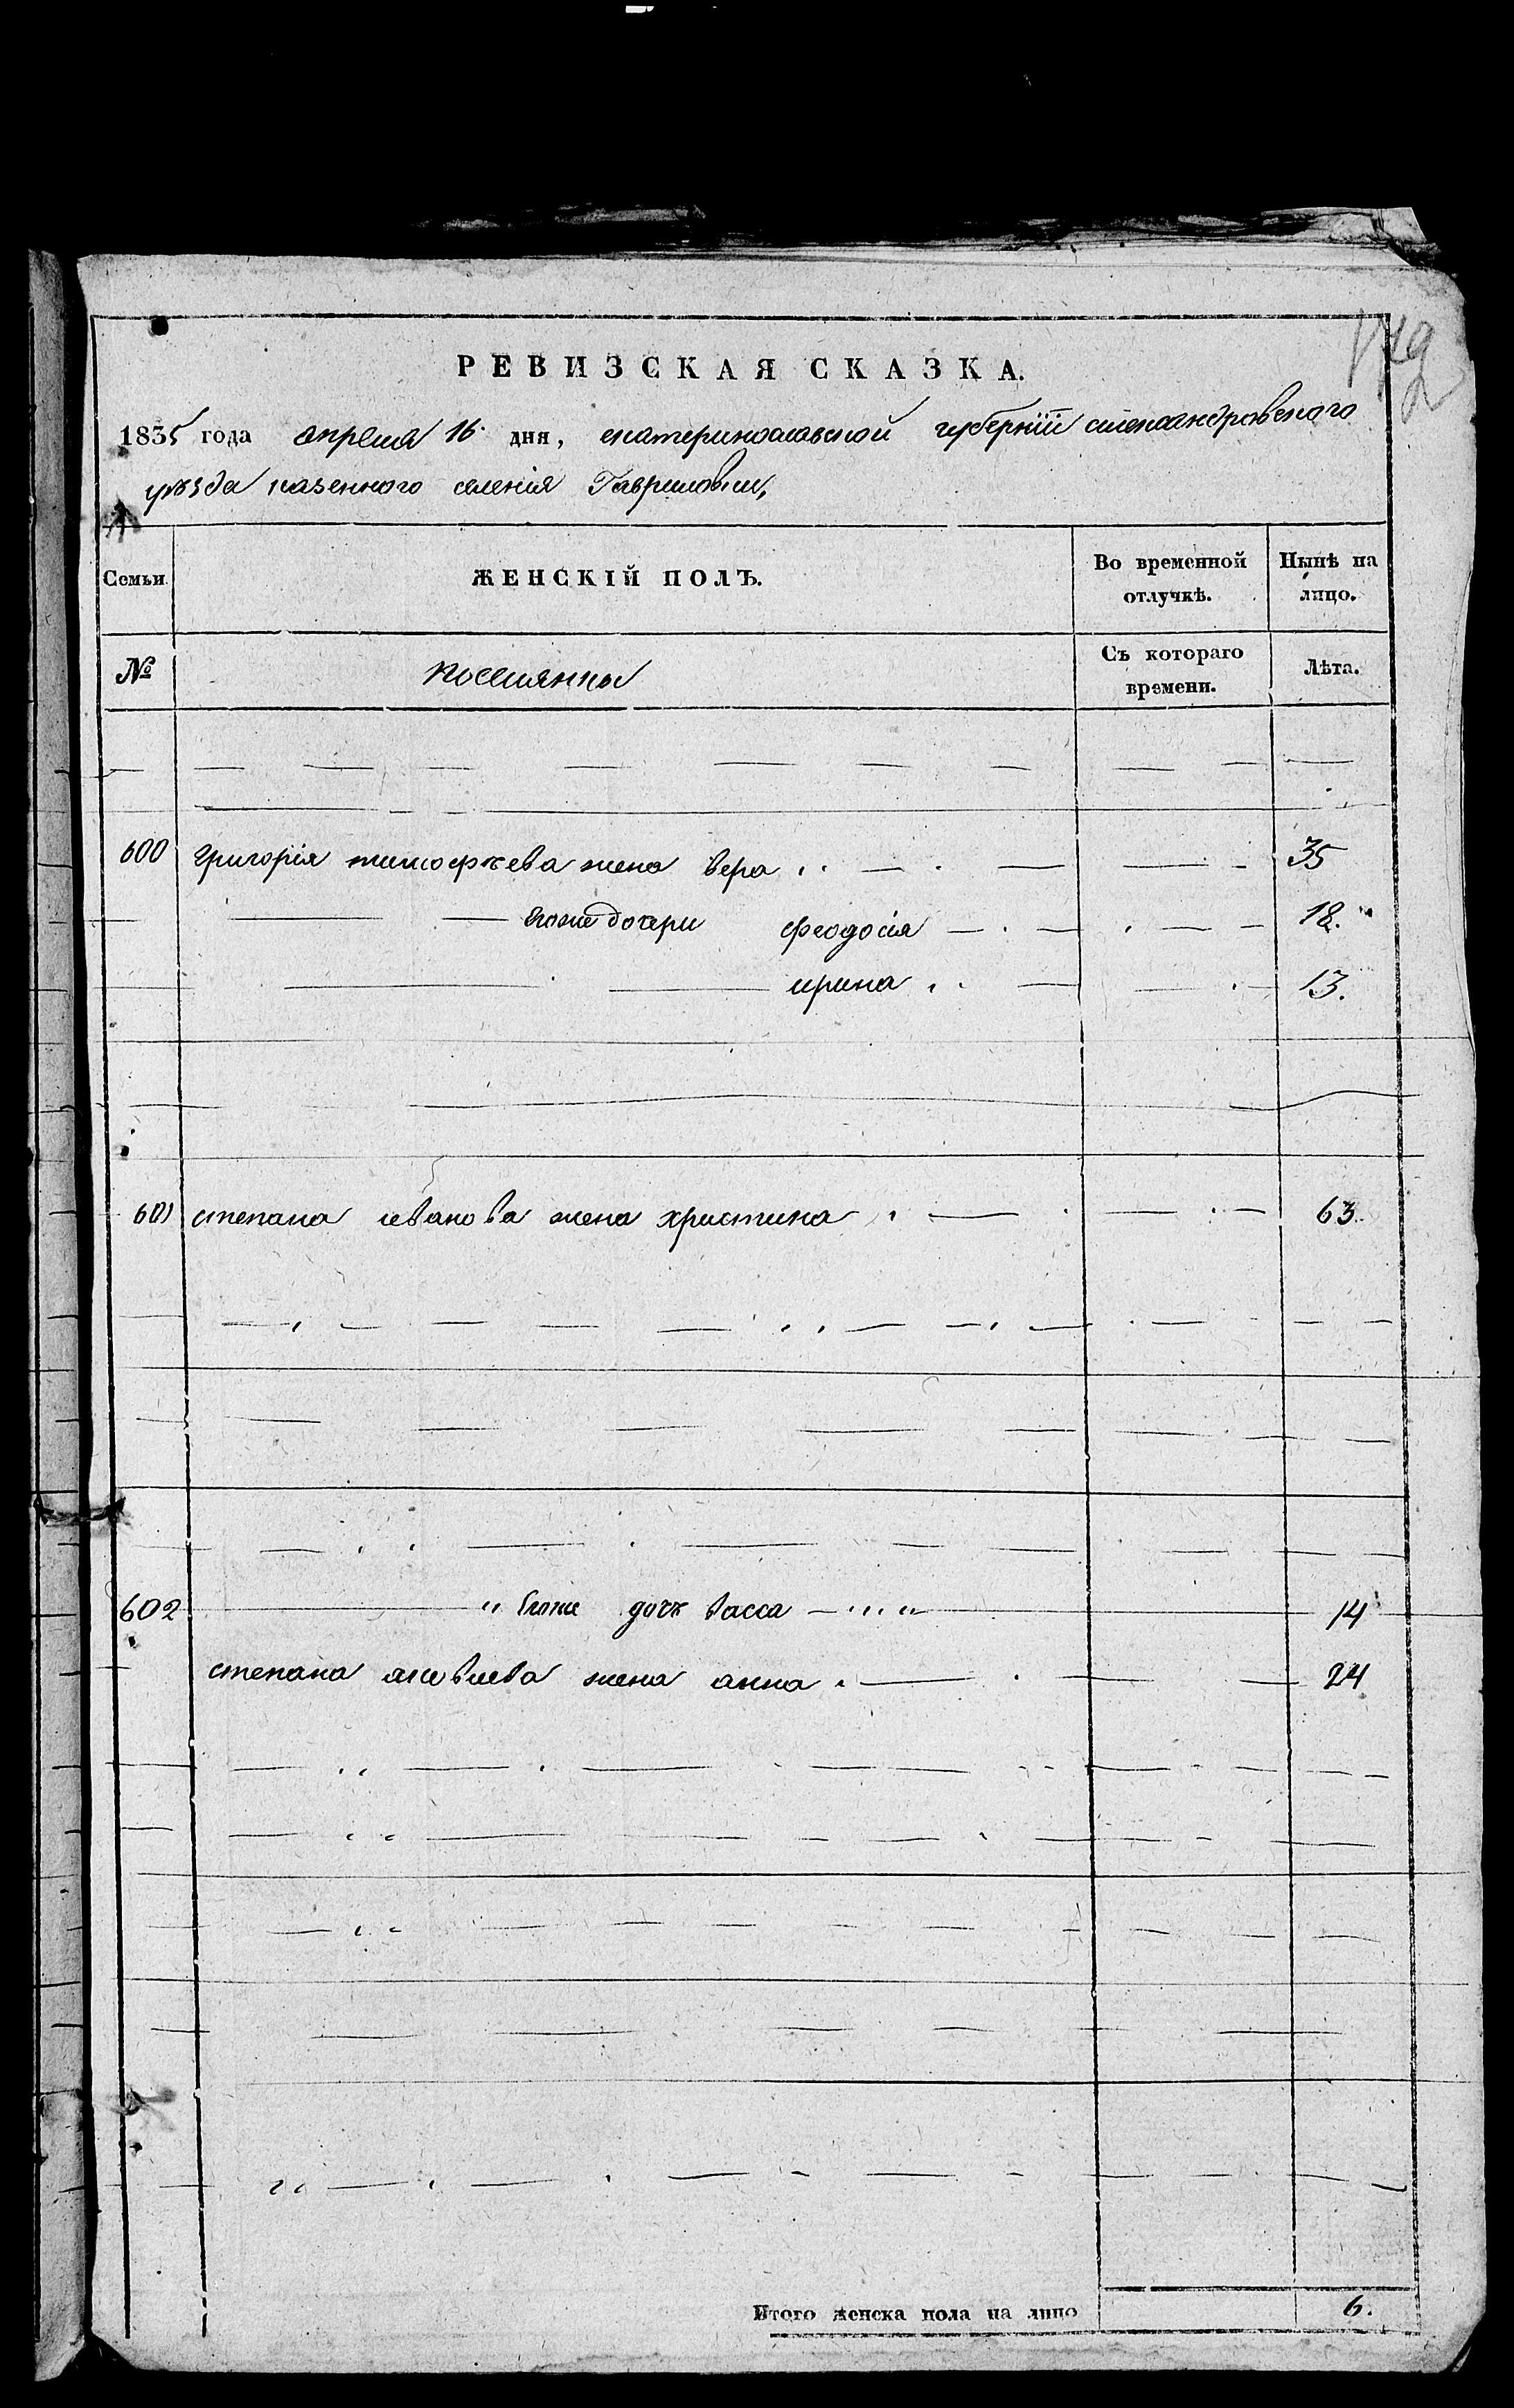 РЕВИЗСКАЯ СКАЗКА.
1835 года апреля 16 дня, екатеринославской губернїй александровского
уѣзда казенного селенія Гавриловки,
Семьи
ЖЕНСКІЙ ПОЛЪ.
Во временной отлучкѣ.
Нынѣ на лицо.
№
поселянки
Съ котораго времени.
Лѣта.
600 Григорія тимофѣева жена вера 35
Егоже дочери феодосія 18.
ирина 13.
601 степана иванова жена христина 63
602 Егоже дочь васса 14
степана жена анна 24
Итого женска пола на лицо 6.